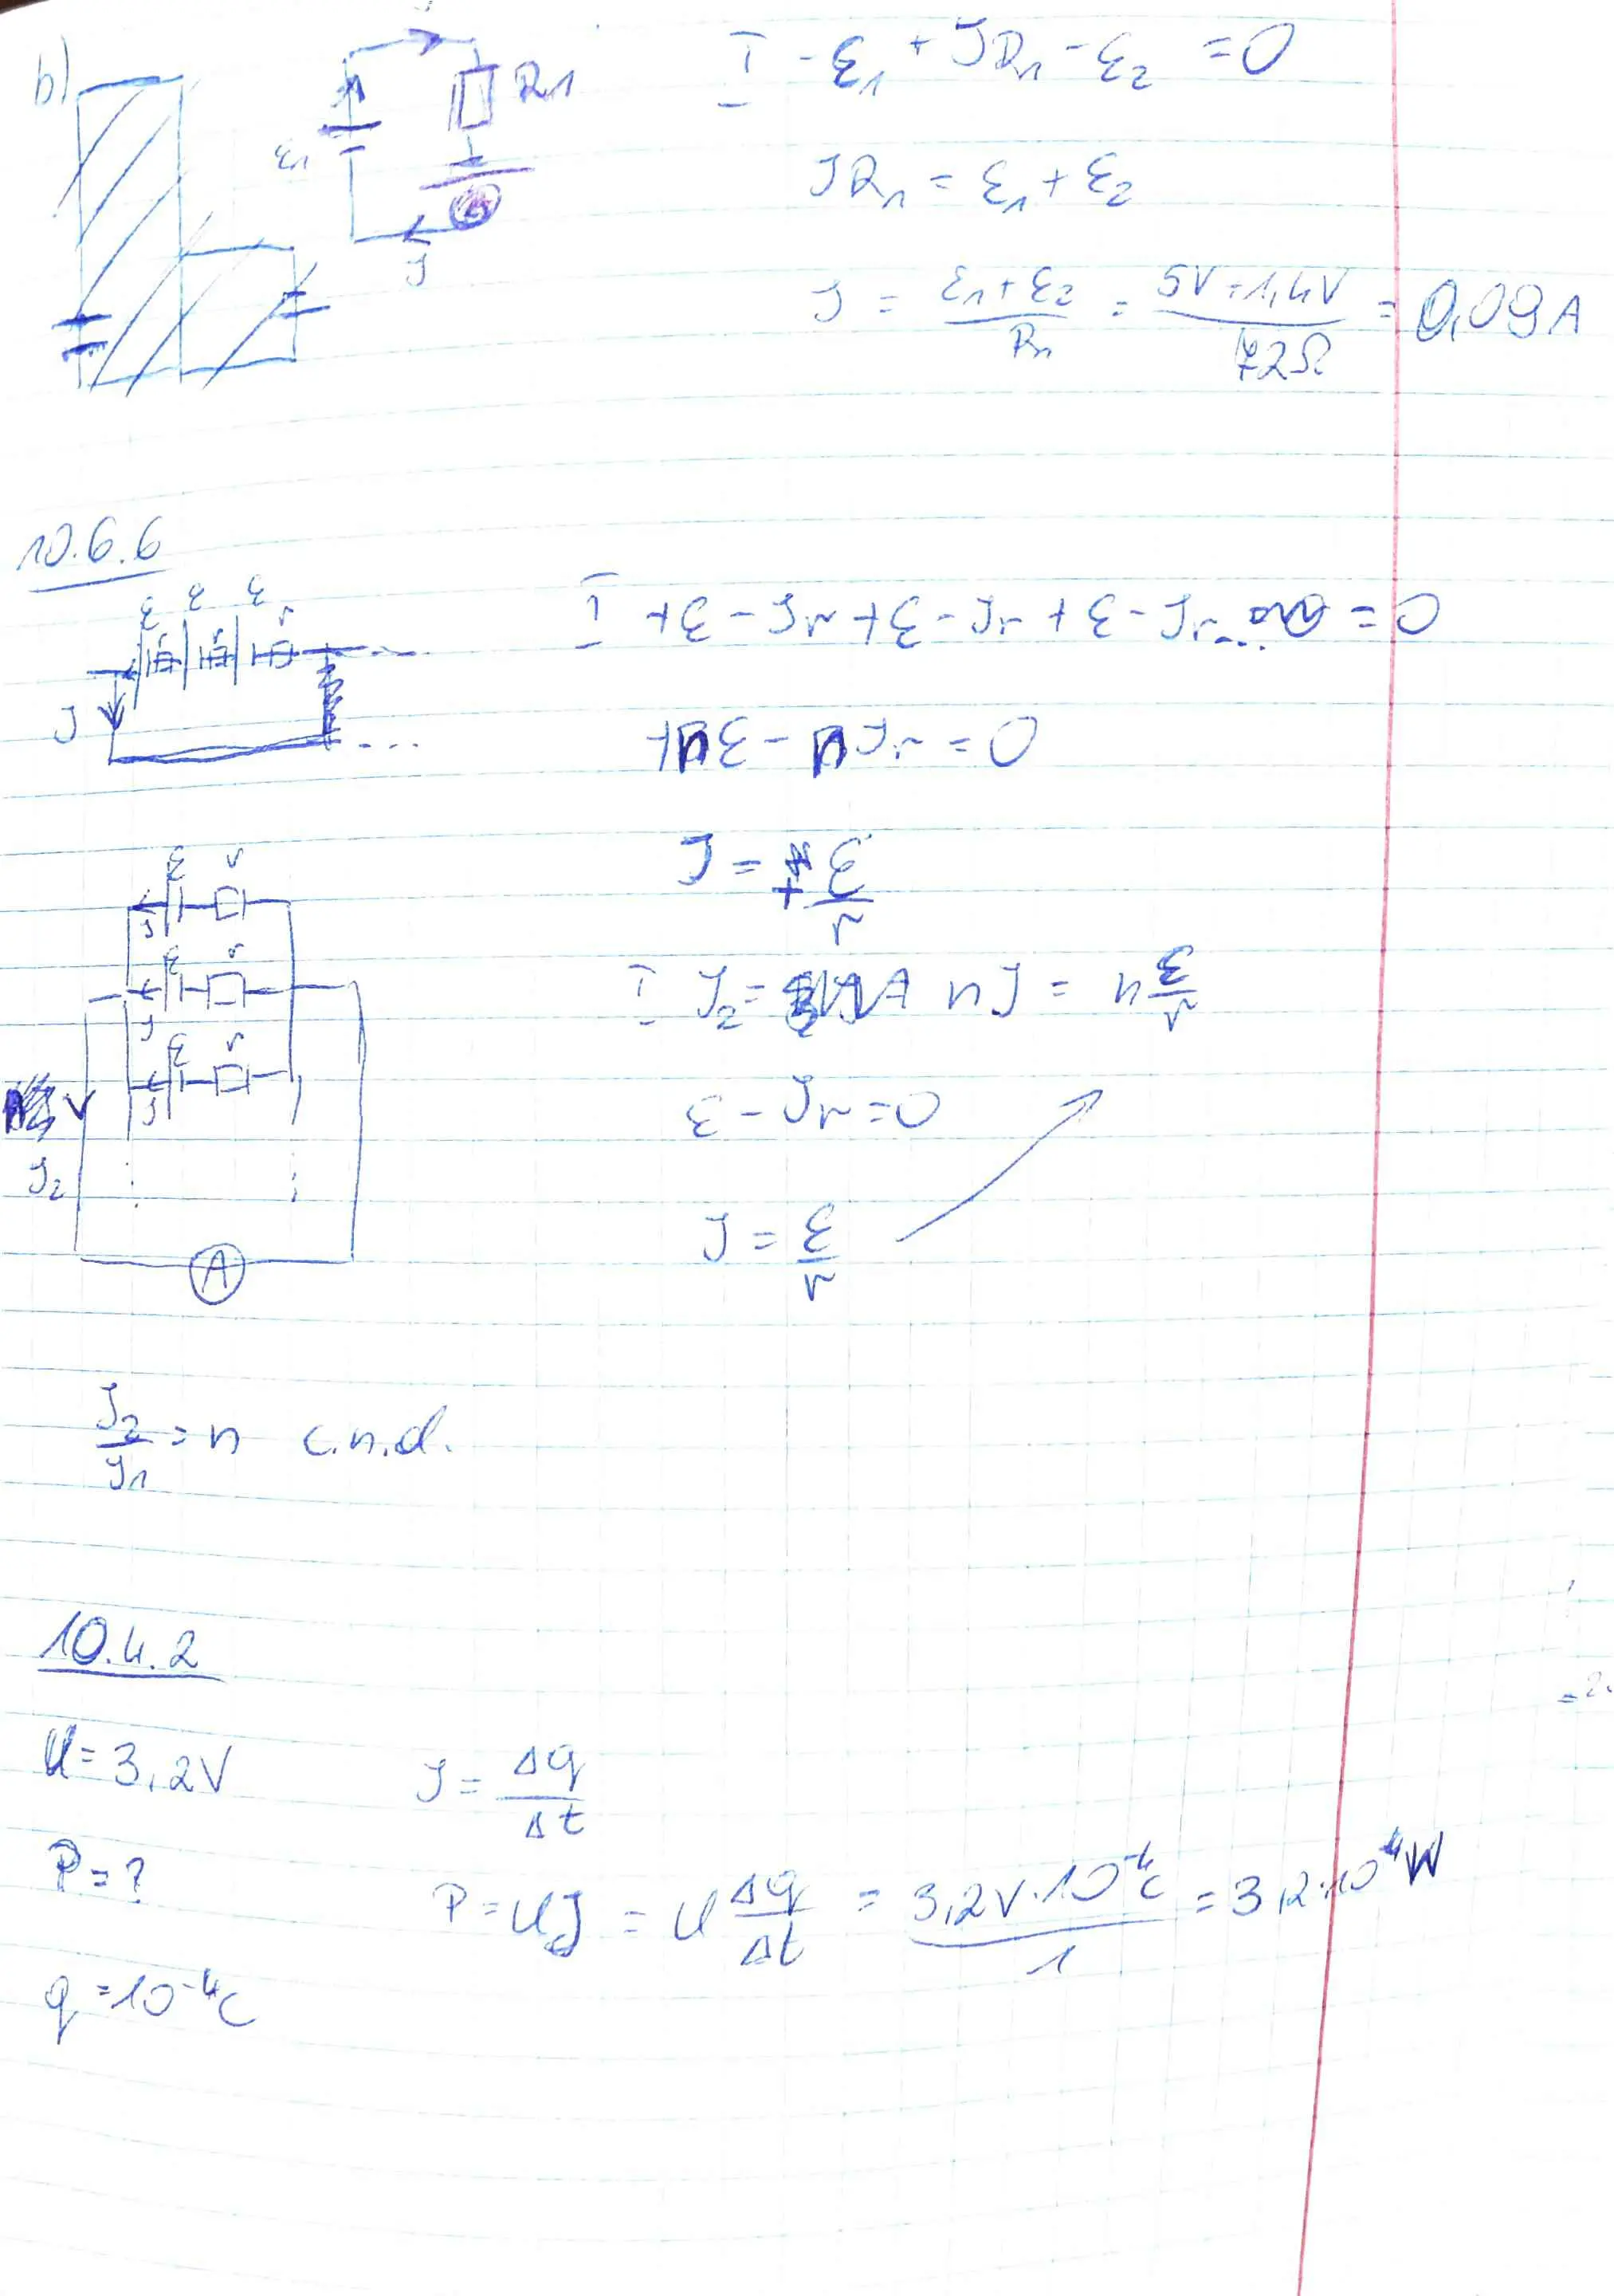 b)
ε1 R1 J
I -ε1 + JR1 - ε2 = 0
JR1 = ε1 + ε2
J = (ε1 + ε2)/R1 = (5V + 1,4V)/72Ω = 0,09A
10.6.6
ε ε ε r
J
I +ε - Jr + ε - Jr + ε - Jr ... = 0
+nε - nJr = 0
J = +ε/r
ε r
J
ε r
J
ε r
J
J2
A
I J2 = nJ = n ε/r
ε - Jr = 0
J = ε/r
J2/J1 = n c.n.d.
10.4.2
U = 3,2V J = Δq/Δt
P = ? P = UJ = U Δq/Δt = (3,2V · 10⁻⁴C)/1 = 3,2 · 10⁻⁴W
q = 10⁻⁴C